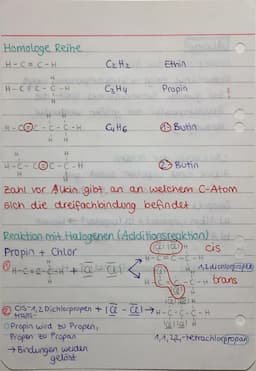 Homologe Reihe
H-C≡C-H C₂H₂ Ethin
H-C≡C-C-H C₃H₄ Propin
H-C≡C-C-C-H C₄H₆ 1-Butin
H-C-C≡C-C-H 2-Butin
Zahl vor Alkin gibt an an welchem C-Atom
sich die dreifachbindung befindet
Reaktion mit Halogenen (Additionsreaktion)
Propin + Chlor cis
H-C=C-C-H
① H-C≡C-C-H + |Cl-Cl| 1,2 dichlorpropen
trans
② Cis-1,2 Dichlorpropen + |Cl-Cl| → H-C-C-C-H
trans-
Propin wird zu Propen,
Propen zu Propan 1,1,2,2-tetrachlorpropan
→ Bindungen werden
gelöst